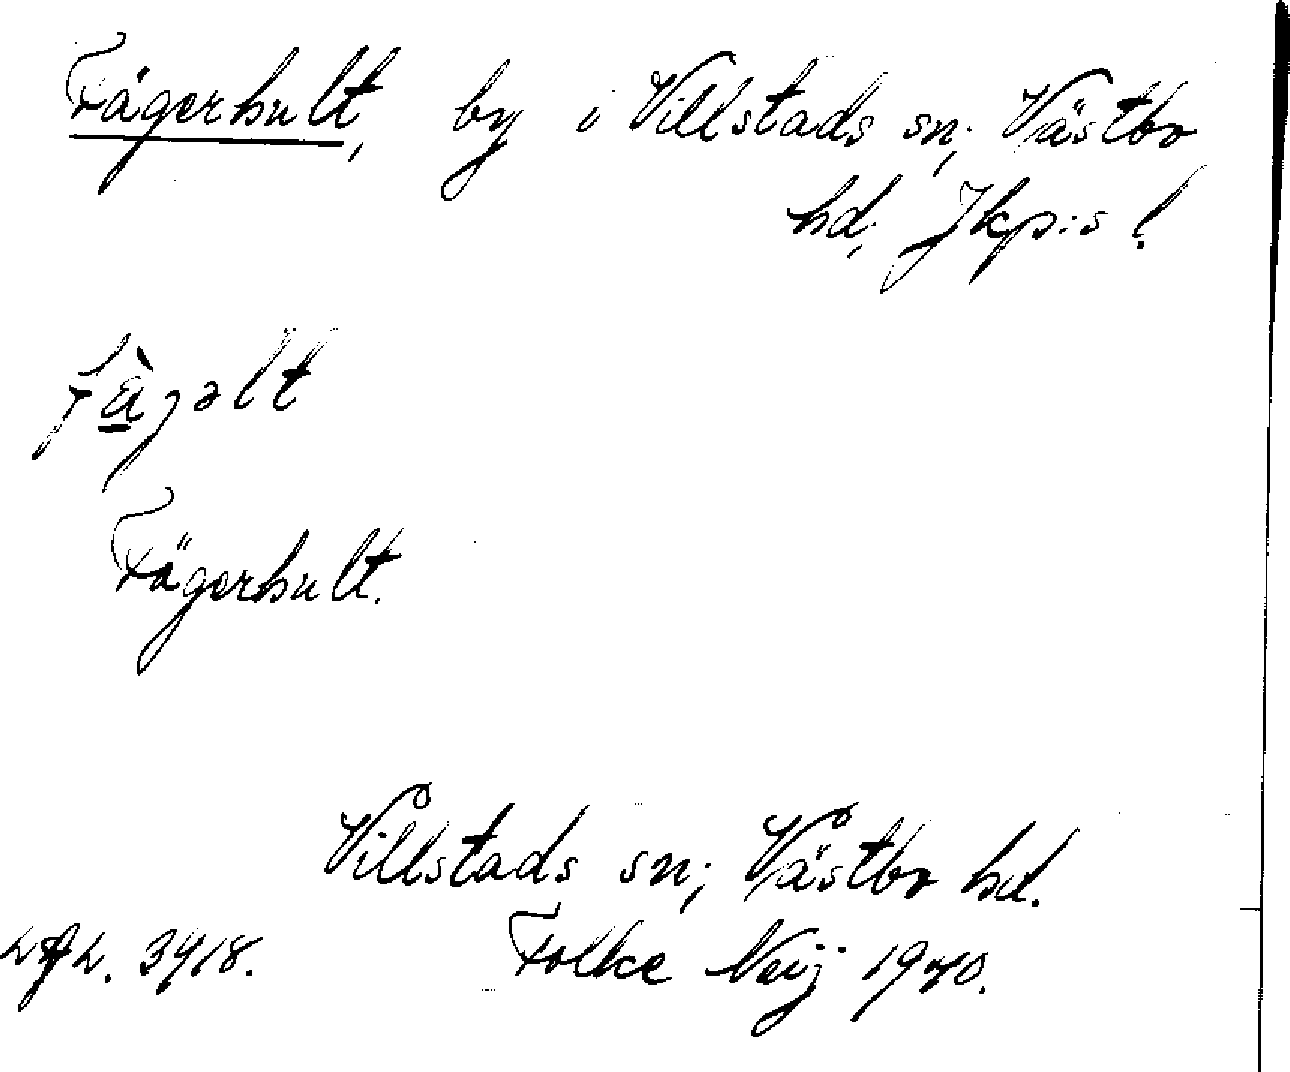 Fägerhult, by i Villstads sn; Västbo
hd; Jkp:s l.
fä̀jəlt
Fägerhult.
Villstads sn; Västbo hd.
3418. Folke Neij 1940.